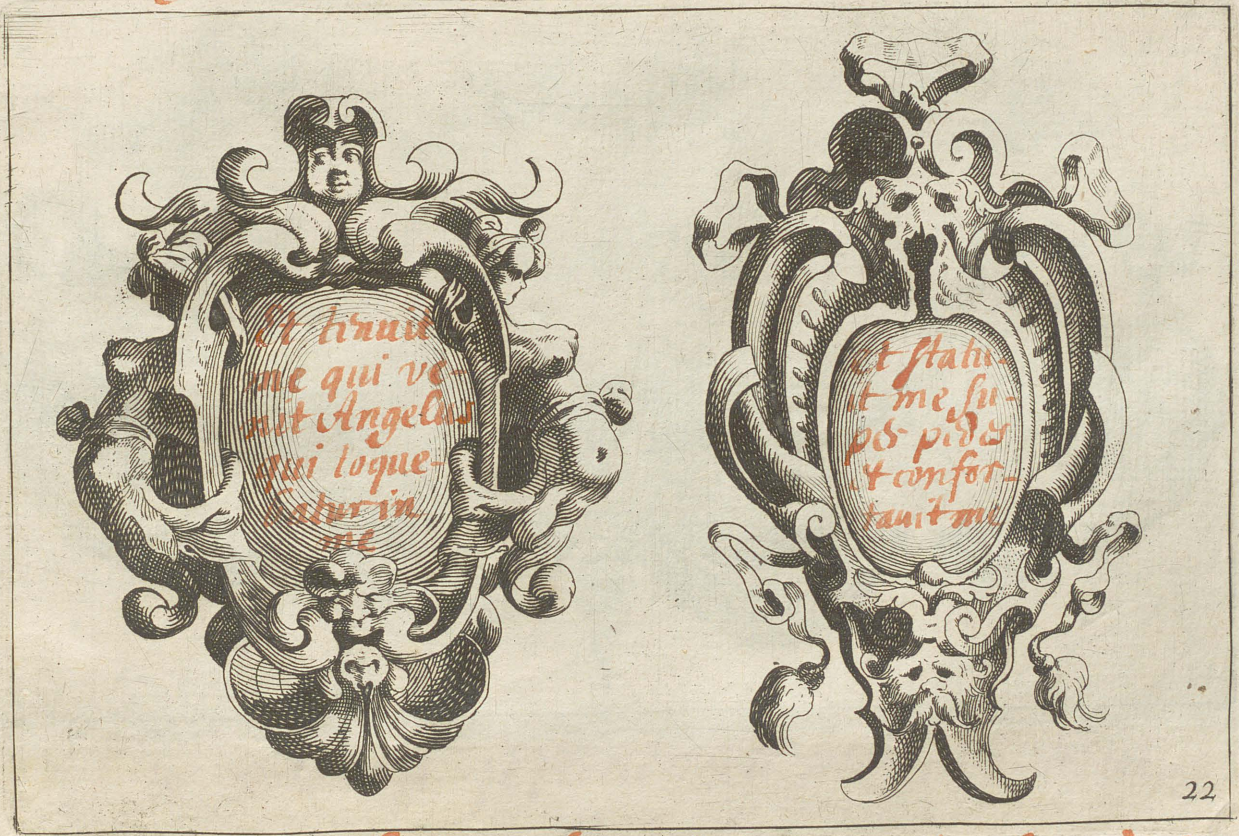 Et tenuit
me qui ve-
nit Angelus
qui loque-
batur in
me
et statu-
it me su-
per pedes
& confor-
tauit me
22